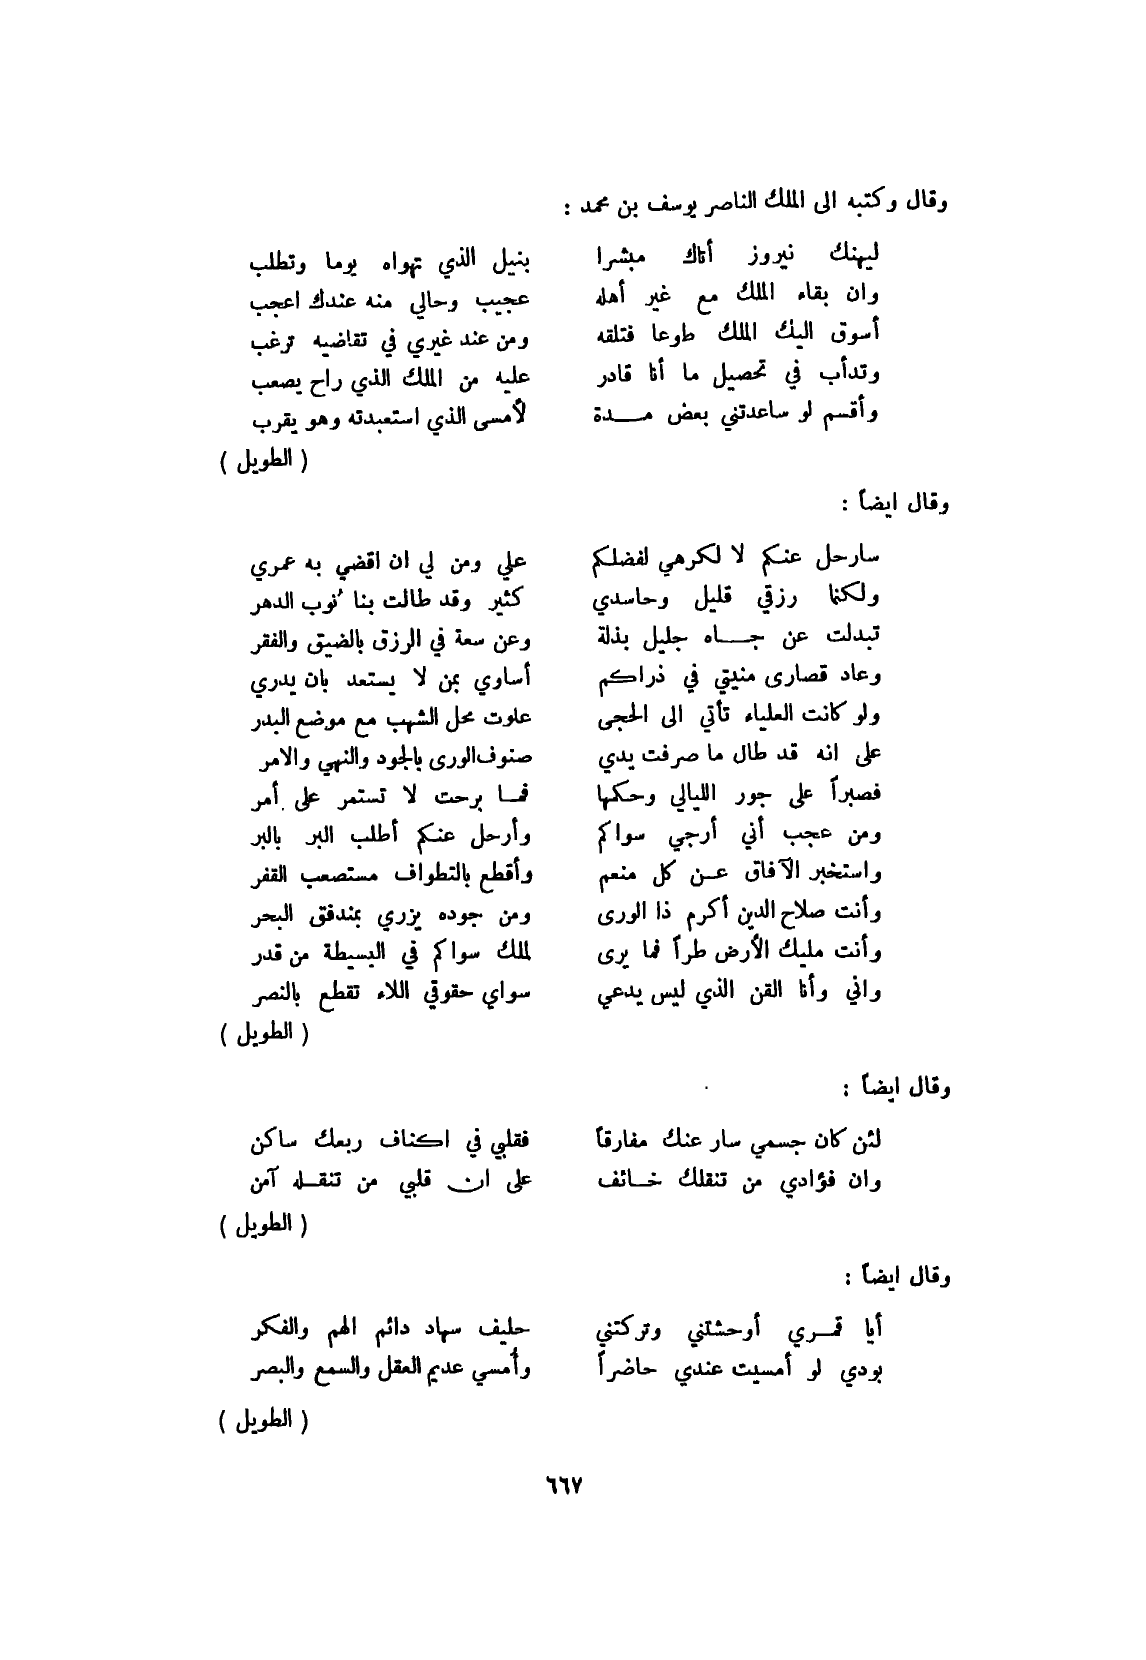 وقال وكتبه الى الملك الناصر يوسف بن محمد :
ليهنك نيروز أتاك مبشرا بنيل الذي تهواه يوما وتطلب
وان بقاء الملك مع غير أهله عجيب وحالي منه عندك اعجب
أسوق اليك الملك طوعا فتلقه ومن عند غيري في تقاضيه ترغب
وتدأب في تحصيل ما أنا قادر عليه من الملك الذي راح يصعب
وأقسم لو ساعدتني بعض مـــدة لأمسى الذي استعبدته وهو يقرب
( الطويل )
وقال ايضاً :
سارحل عنكم لا لكرهي لفضلكم علي ومن لي ان اقضي به عمري
ولكنما رزقي قليل وحاسدي كثير وقد طالت بنا نُوب الدهر
تبدلت عن جـــاه جليل بذلة وعن سعة في الرزق بالضيق والفقر
وعاد قصارى منيتي في ذراكم أساوي بمن لا يستعد بان يدري
ولو كانت العلياء تأتي الى الحجى علوت محل الشهب مع موضع البدر
على انه قد طال ما صرفت يدي صنوف الورى بالجود والنهي والامر
فصبراً على جور الليالي وحكمها فمـا برحت لا تستمر على أمر
ومن عجب أني أرجي سواكم وأرحل عنكم أطلب البر بالبر
واستخبر الآفاق عـن كل منعم وأقطع بالتطواف مستصعب القفر
وأنت صلاح الدين أكرم ذا الورى ومن جوده يزري بمندفق البحر
وأنت مليك الأرض طراً فما يرى لملك سواكم في البسيطة من قدر
واني وأنا القن الذي ليس يدعي سواي حقوقي اللاء تقطع بالنصر
( الطويل )
وقال ايضاً :
لئن كان جسمي سار عنك مفارقاً فقلبي في اكناف ربعك ساكن
وان فؤادي من تنقلك خـائف على ان قلبي من تنقـله آمن
( الطويل )
وقال ايضاً :
أيا قمـري أوحشتني وتركتني حليف سهاد دائم الهم والفكر
بودي لو أمسيت عندي حاضراً وأمسي عديم العقل والسمع والبصر
( الطويل )
٦٦٧